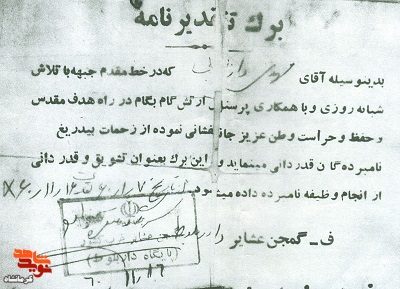 برگ تقدیر نامه
بدینوسیله آقای مهدی که در خط مقدم جبهه با تلاش
شبانه روزی و با همکاری پرسنل ارتش گام بگام در راه هدف مقدس
و حفظ و حراست وطن عزیز جانفشانی نموده از زحمات بیدریغ
نامبرده گان قدردانی مینماید و این برگ بعنوان تشویق و قدر دانی
از انجام وظیفه نامبرده داده میشود از تاریخ
ف - گمجن عشایر
پایگاه دار بلوط
۶۰/۱۱/۱۶
نوید شاهد
کرمانشاه